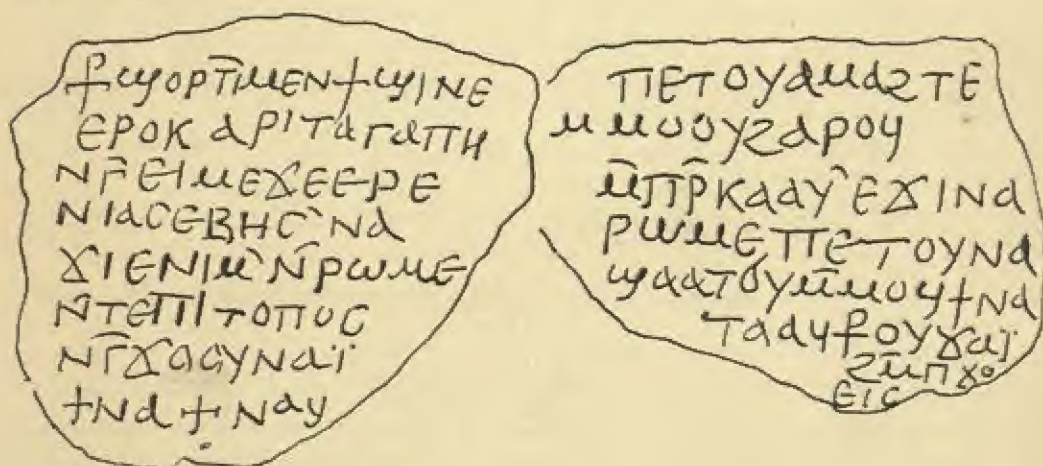 ϯϣⲟⲣⲡ̅ⲙⲉⲛϯϣⲓⲛⲉ
ⲉⲣⲟⲕⲁⲣⲓⲧⲁⲅⲁⲡⲏ
ⲛⲅ̅ⲉⲓⲙⲉϫⲉⲉⲣⲉ
ⲛⲓⲁⲥⲉⲃⲏⲥ`ⲛⲁ
ϫⲓⲉⲛⲓⲙ`ⲛ̅ⲣⲱⲙⲉ
ⲛ̅ⲧⲉⲡⲓⲧⲟⲡⲟⲥ
ⲛⲅ̅ϫⲟⲟⲩⲛⲁⲓ̈
ϯⲛⲁϯⲛⲁⲩ
ⲡⲉⲧⲟⲩⲁⲙⲁϩⲧⲉ
ⲙⲙⲟⲟⲩϩⲁⲣⲟϥ
ⲙ̅ⲡⲣ̅ⲕⲁⲁⲩ`ⲉϫⲓⲛⲁ
ⲣⲱⲙⲉⲡⲉⲧⲟⲩⲛⲁ
ϣⲁⲁⲧⲟⲩⲙ̅ⲙⲟϥϯⲛⲁ
ⲧⲁⲁϥⳁⲟⲩϫⲁⲓ̈
ϩⲙ̅ⲡϫⲟ
ⲉⲓⲥ